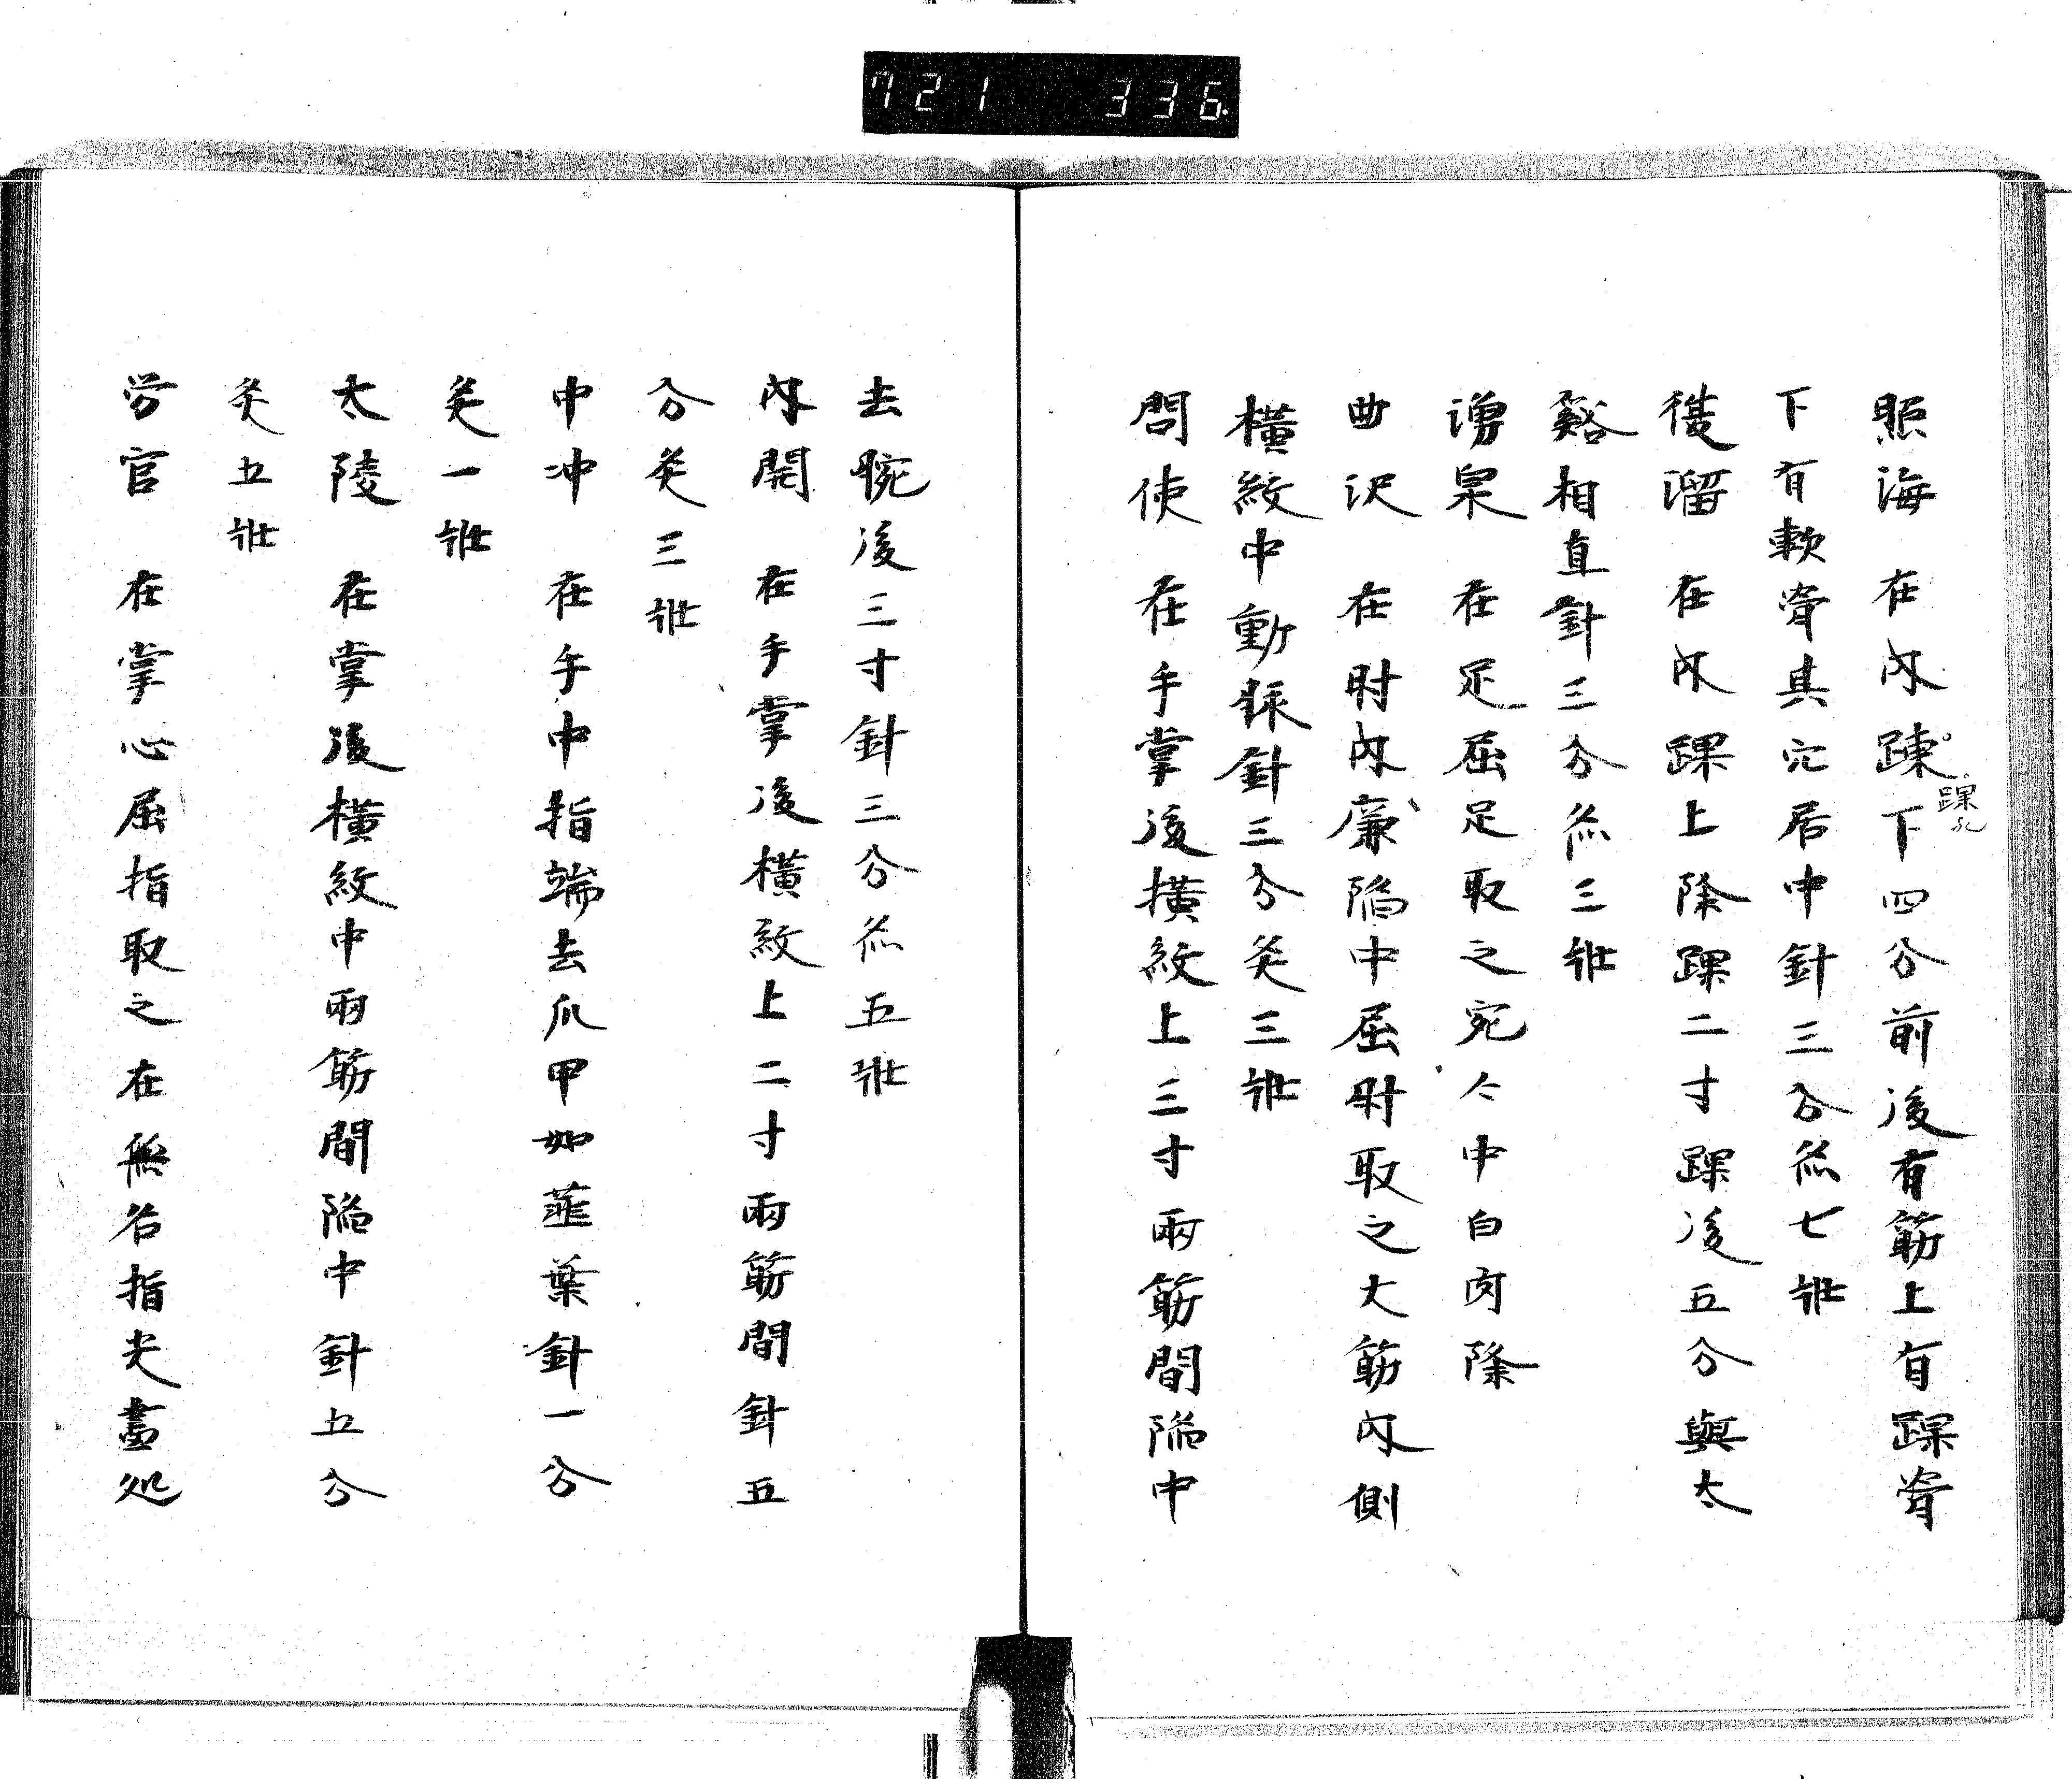 721 336
照海 在内踈下四分前後有筋上有踝骨
踝乀
下有軟骨其穴居中針三分灸七壯
復溜 在内踝上除踝二寸踝後五分與太
谿相直針三分灸三壯
湧泉 在足屈足取之宛々中白肉際
曲沢 在肘内廉陥中屈肘取之大筋内側
横紋中動脉針三分灸三壯
間使 在手掌後横紋上三寸兩筋間陥中
去腕後三寸針三分灸五壯
内関 在手掌後横紋上二寸兩筋間針五
分灸三壯
中冲 在手中指端去爪甲如韮葉針一分
灸一壯
太陵 在掌後横紋中兩筋間陥中針五分
灸五壯
労官 在掌心屈指取之在無名指尖畫処